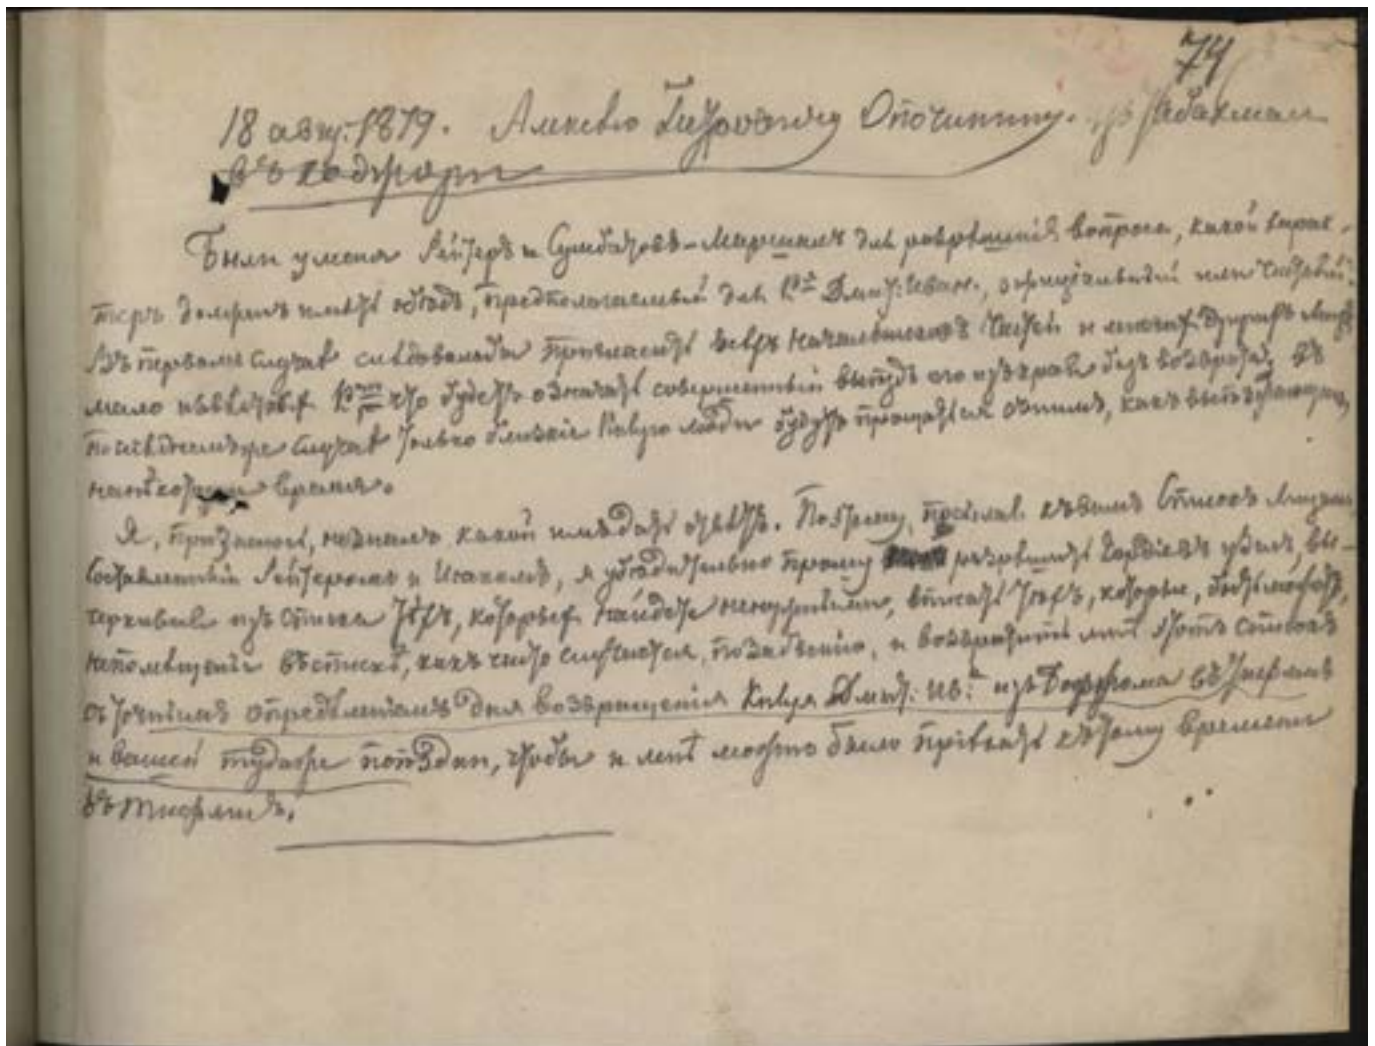 74
18 авгу: 1879. Алексѣю Петровичу Опочинину. изъ Абастуман
въ Коджоры
Были у меня Рейтеръ и Сумбатовъ-Маршалъ для разрѣшенія вопроса, какой харак-
теръ долженъ имѣть обѣдъ, предполагаемый для Кн. Дмит: Иван., оффиціальный или частный.
Въ первомъ случаѣ слѣдовало бы пригласить всѣхъ начальниковъ частей и многихъ другихъ лицъ
мало извѣстныхъ что будетъ означать совершенный выѣздъ его изъ края безъ возврата; въ
послѣднемъ же случаѣ только близкіе Князю люди будутъ прощаться съ нимъ, какъ выѣзжающимъ
на нѣкоторое время.
Я, признаюсь, не знаю какой имъ дать отвѣтъ. Поэтому, посылая къ вамъ Списокъ лицамъ,
составленный Рейтеромъ и Исаковымъ, я убѣдительно прошу разрѣшить Гордіевъ узелъ, вы-
черкивая изъ списка тѣхъ, которыхъ найдете ненужными, вписать тѣхъ, которые, быть можетъ,
не помѣщены въ спискѣ, какъ часто случается, по забвенію, и возвратить мнѣ этотъ списокъ
съ точнымъ опредѣленіемъ дня возвращенія Князя Дмит: Ив: изъ Боржома въ Тифлисъ
и вашей туда же поѣздки, чтобы и мнѣ можно было пріѣхать къ тому времени
въ Тифлисъ.